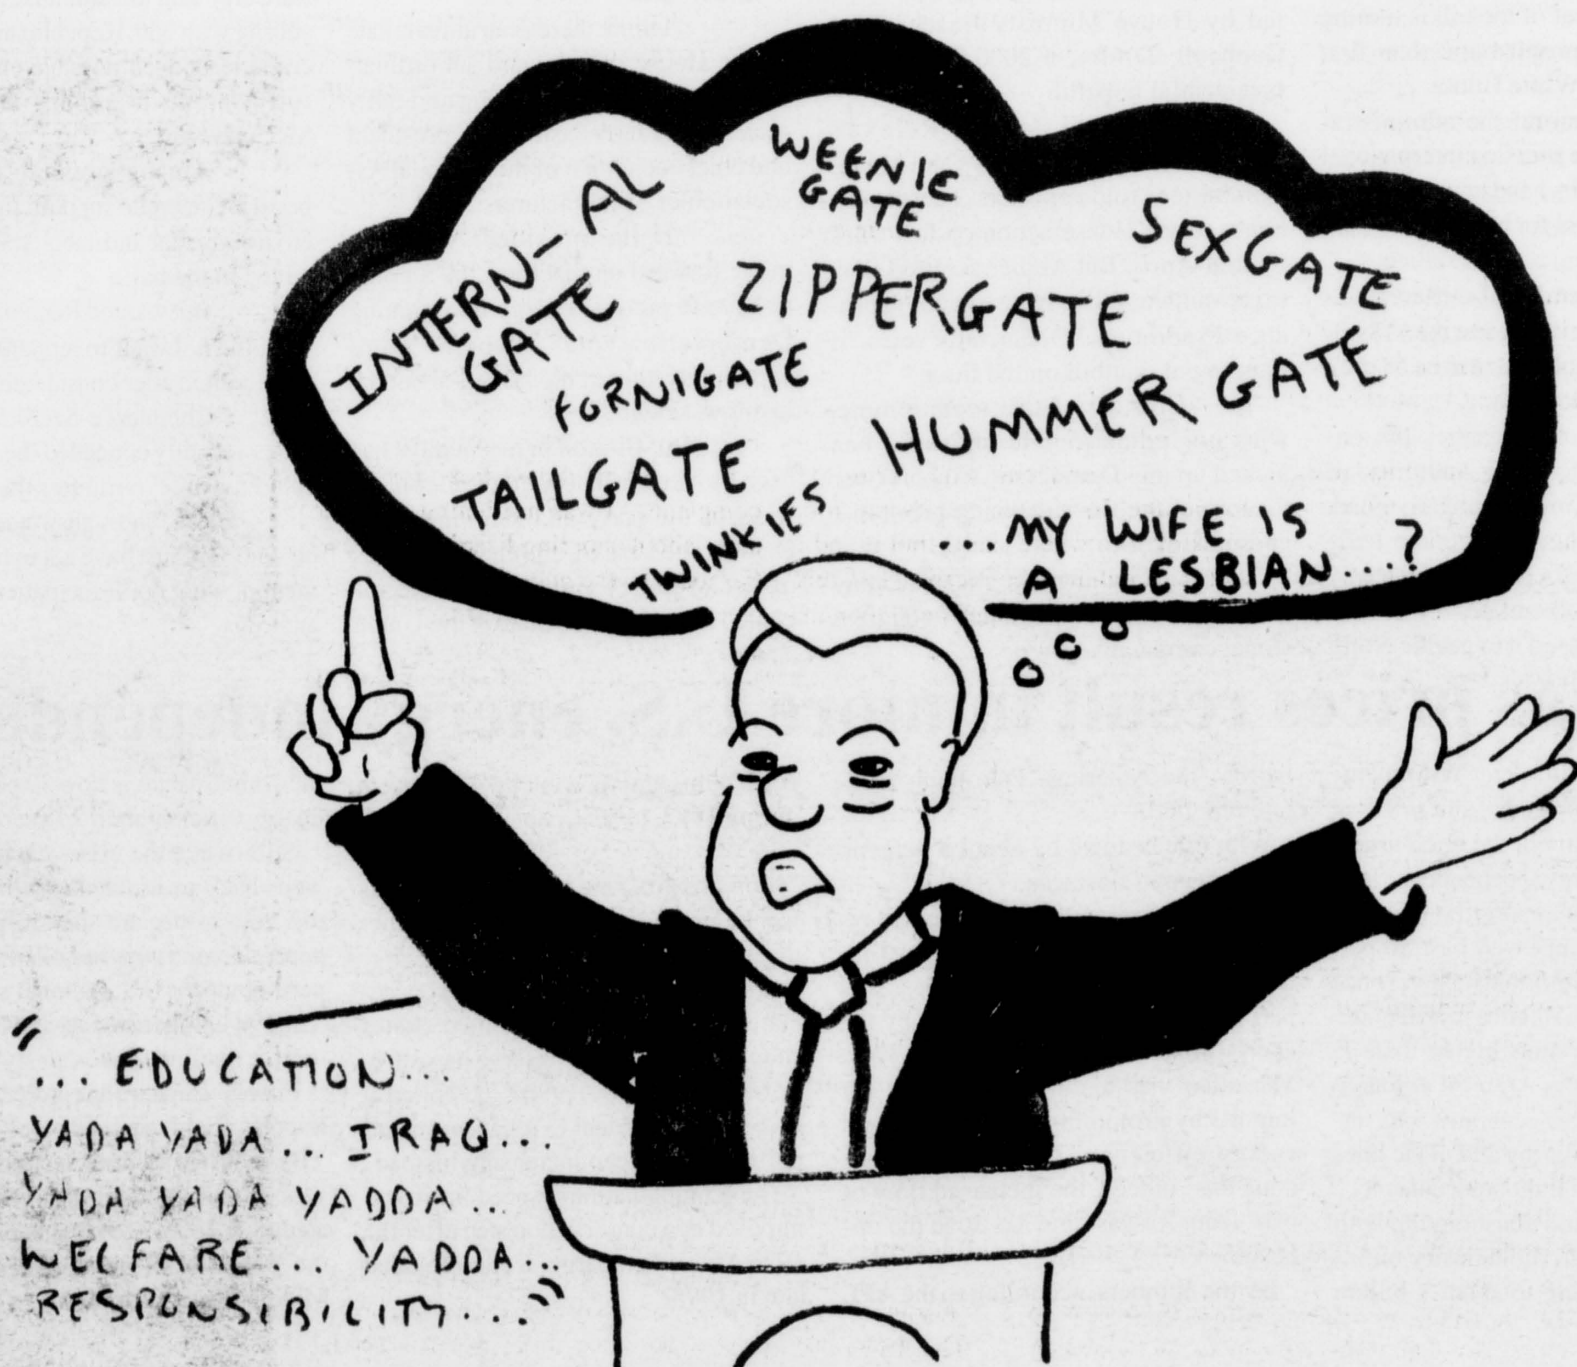 WEENIE
GATE
INTERN-AL
GATE
SEXGATE
ZIPPERGATE
FORNIGATE
HUMMER GATE
TAILGATE
TWINKIES
...MY WIFE IS
A LESBIAN...?
"
... EDUCATION...
YADA YADA... IRAQ...
YADA YADA YADDA...
WELFARE... YADDA...
RESPONSIBILITY..."